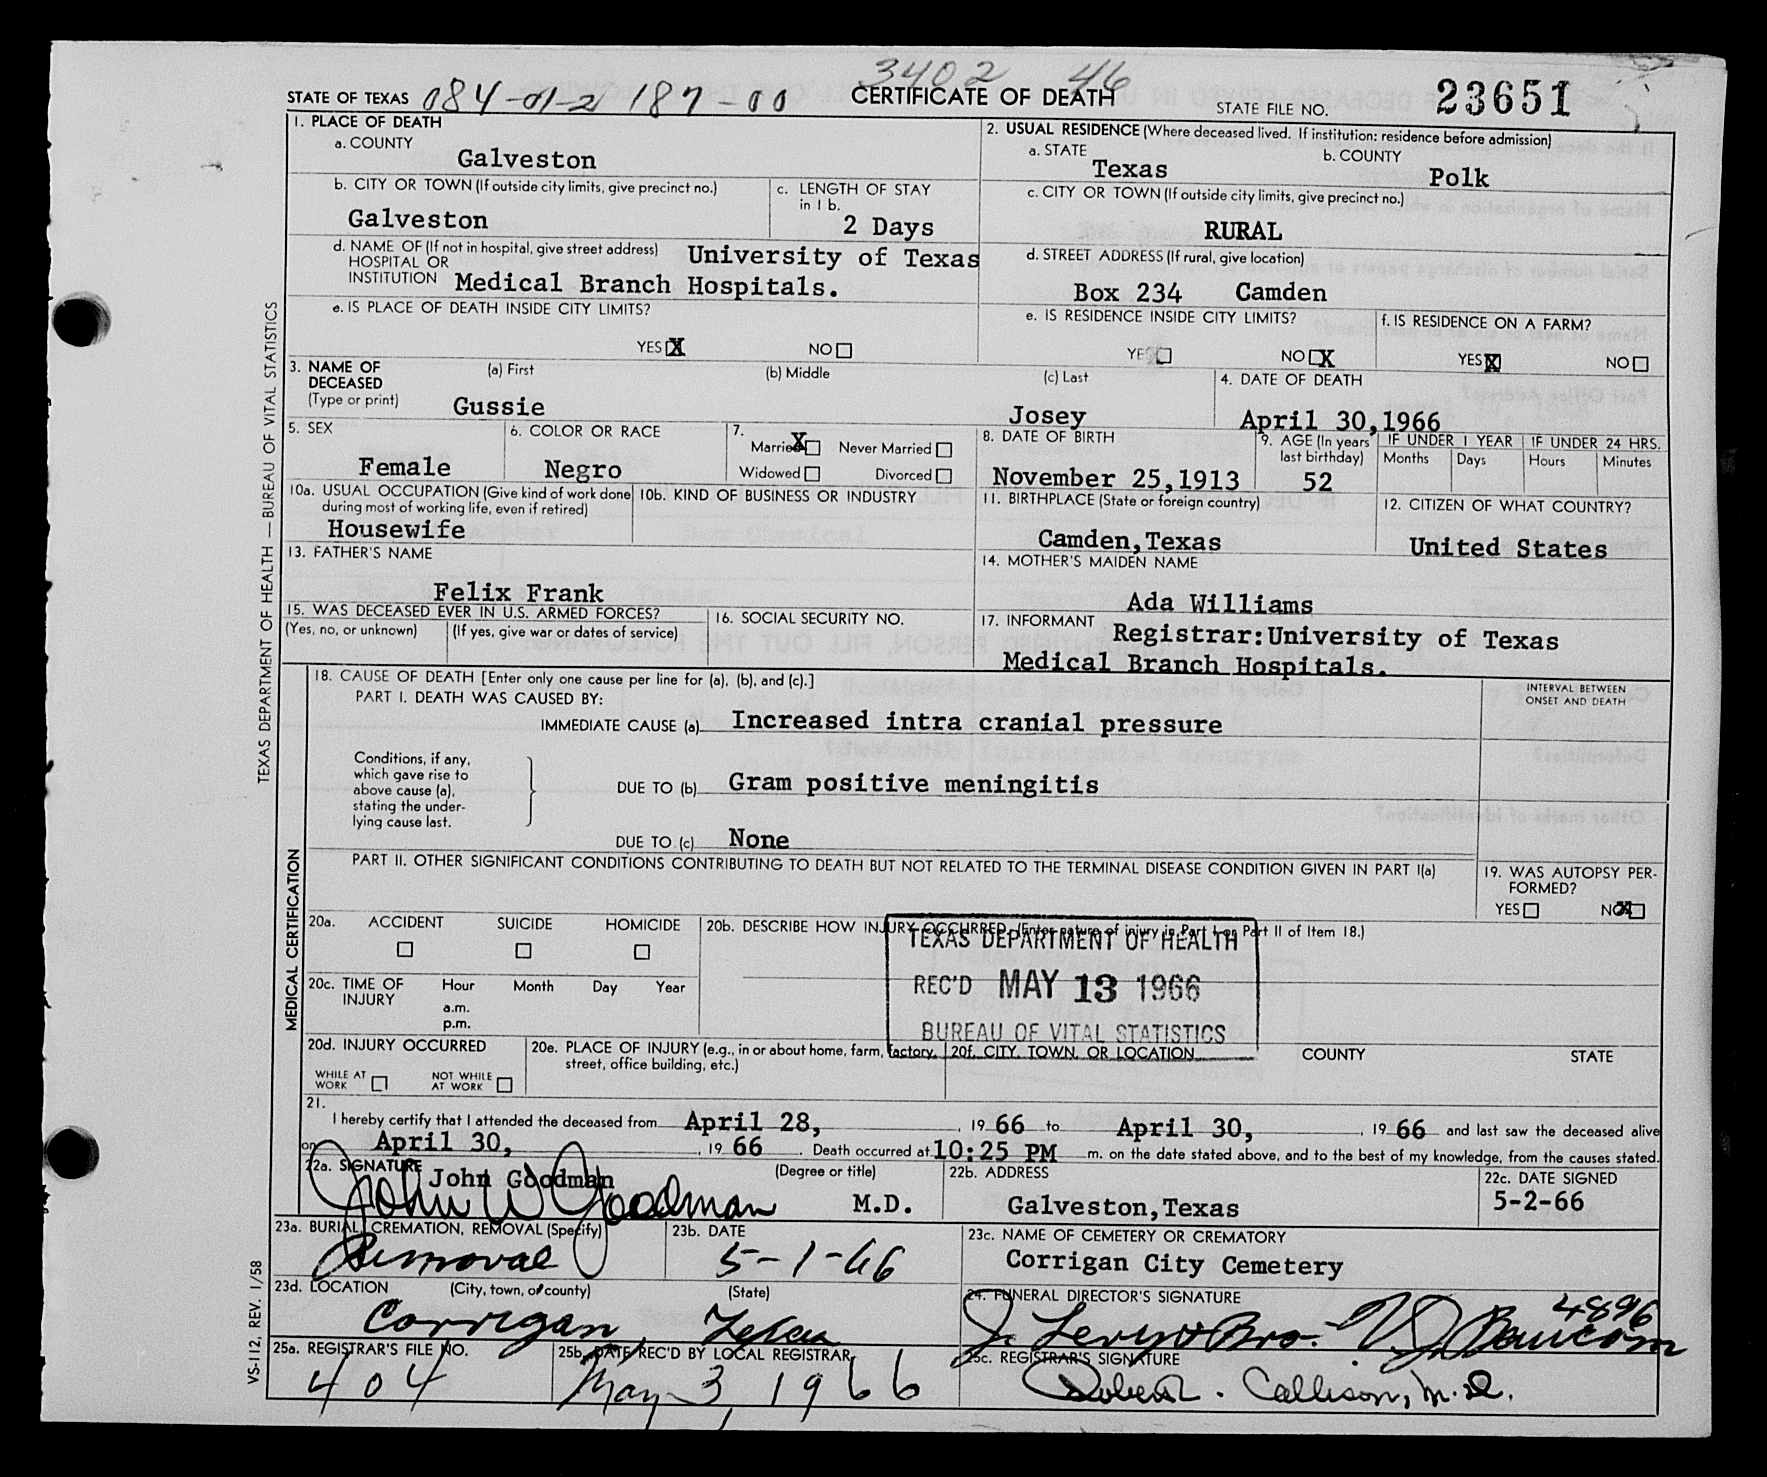 3402 46
STATE OF TEXAS 084-01-2 187-00 CERTIFICATE OF DEATH STATE FILE NO. 23651
1. PLACE OF DEATH
a. COUNTY
Galveston
2. USUAL RESIDENCE (Where deceased lived. If institution: residence before admission)
a. STATE
Texas
b. COUNTY
Polk
b. CITY OR TOWN (If outside city limits, give precinct no.)
Galveston
c. LENGTH OF STAY
in 1 b.
2 Days
c. CITY OR TOWN (If outside city limits, give precinct no.)
RURAL
d. NAME OF (If not in hospital, give street address)
HOSPITAL OR
INSTITUTION
University of Texas
Medical Branch Hospitals.
d. STREET ADDRESS (If rural, give location)
Box 234 Camden
e. IS PLACE OF DEATH INSIDE CITY LIMITS?
YES X NO
e. IS RESIDENCE INSIDE CITY LIMITS?
YES NO X
f. IS RESIDENCE ON A FARM?
YES X NO
3. NAME OF
DECEASED
(Type or print)
(a) First
Gussie
(b) Middle
(c) Last
Josey
4. DATE OF DEATH
April 30,1966
5. SEX
Female
6. COLOR OR RACE
Negro
7.
Married X Never Married
Widowed Divorced
8. DATE OF BIRTH
November 25,1913
9. AGE (In years
last birthday)
52
IF UNDER 1 YEAR
Months Days
IF UNDER 24 HRS.
Hours Minutes
10a. USUAL OCCUPATION (Give kind of work done
during most of working life, even if retired)
Housewife
10b. KIND OF BUSINESS OR INDUSTRY
11. BIRTHPLACE (State or foreign country)
Camden,Texas
12. CITIZEN OF WHAT COUNTRY?
United States
13. FATHER'S NAME
Felix Frank
14. MOTHER'S MAIDEN NAME
Ada Williams
15. WAS DECEASED EVER IN U.S. ARMED FORCES?
(Yes, no, or unknown) (If yes, give war or dates of service)
16. SOCIAL SECURITY NO.
17. INFORMANT
Registrar:University of Texas
Medical Branch Hospitals.
18. CAUSE OF DEATH [Enter only one cause per line for (a), (b), and (c).]
PART I. DEATH WAS CAUSED BY:
IMMEDIATE CAUSE (a) Increased intra cranial pressure
INTERVAL BETWEEN
ONSET AND DEATH
Conditions, if any,
which gave rise to
above cause (a),
stating the under-
lying cause last.
DUE TO (b) Gram positive meningitis
DUE TO (c) None
PART II. OTHER SIGNIFICANT CONDITIONS CONTRIBUTING TO DEATH BUT NOT RELATED TO THE TERMINAL DISEASE CONDITION GIVEN IN PART I(a)
19. WAS AUTOPSY PER-
FORMED?
YES NO X
20a. ACCIDENT SUICIDE HOMICIDE
20b. DESCRIBE HOW INJURY OCCURRED. (Enter nature of injury in Part I or Part II of Item 18.)
TEXAS DEPARTMENT OF HEALTH
REC'D MAY 13 1966
BUREAU OF VITAL STATISTICS
20c. TIME OF
INJURY
Hour Month Day Year
a.m.
p.m.
20d. INJURY OCCURRED
WHILE AT
WORK
NOT WHILE
AT WORK
20e. PLACE OF INJURY (e.g., in or about home, farm, factory,
street, office building, etc.)
20f. CITY, TOWN, OR LOCATION COUNTY STATE
21.
I hereby certify that I attended the deceased from April 28, , 19 66 to April 30, , 19 66 and last saw the deceased alive
on April 30, , 19 66 . Death occurred at 10:25 PM m. on the date stated above, and to the best of my knowledge, from the causes stated.
22a. SIGNATURE
John Goodman
John W Goodman
(Degree or title)
M.D.
22b. ADDRESS
Galveston,Texas
22c. DATE SIGNED
5-2-66
23a. BURIAL, CREMATION, REMOVAL (Specify)
Removal
23b. DATE
5-1-66
23c. NAME OF CEMETERY OR CREMATORY
Corrigan City Cemetery
23d. LOCATION (City, town, or county) (State)
Corrigan, Texas
24. FUNERAL DIRECTOR'S SIGNATURE
4896
J. Levy & Bro. Baucom
25a. REGISTRAR'S FILE NO.
404
25b. DATE REC'D BY LOCAL REGISTRAR
May 3, 1966
25c. REGISTRAR'S SIGNATURE
Robert Callison, M.D.
TEXAS DEPARTMENT OF HEALTH — BUREAU OF VITAL STATISTICS
MEDICAL CERTIFICATION
VS-112, REV. 1/58